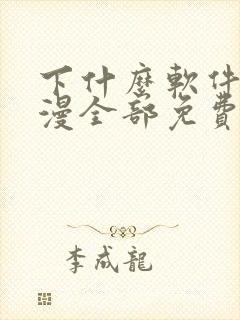 下什麼軟件
漫全部免費
李成龍